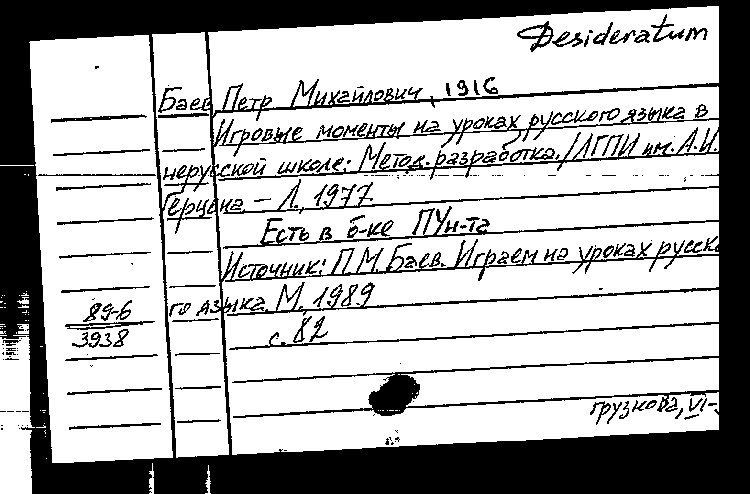 Desideratum
Баев, Петр Михайлович, 1916
Игровые моменты на уроках русского языка в
нерусской школе: Метод. разработка. / ЛГПИ им. А.И.
Герцена. – Л., 1977
Есть в б-ке ПУн-та
Источник: П.М. Баев. Играем на уроках русско
го языка. М., 1989
с. 82
89-6
3938
грузнова, VI-